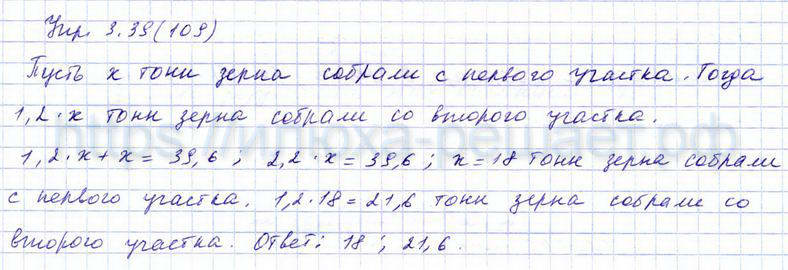 Упр. 3.39(109)
Пусть x тонн зерна собрали с первого участка. Тогда
1,2·x тонн зерна собрали со второго участка.
https://илюха-решает.рф
1,2·x+x=39,6; 2,2·x=39,6; x=18 тонн зерна собрали
с первого участка. 1,2·18=21,6 тонн зерна собрали со
второго участка. Ответ: 18; 21,6.